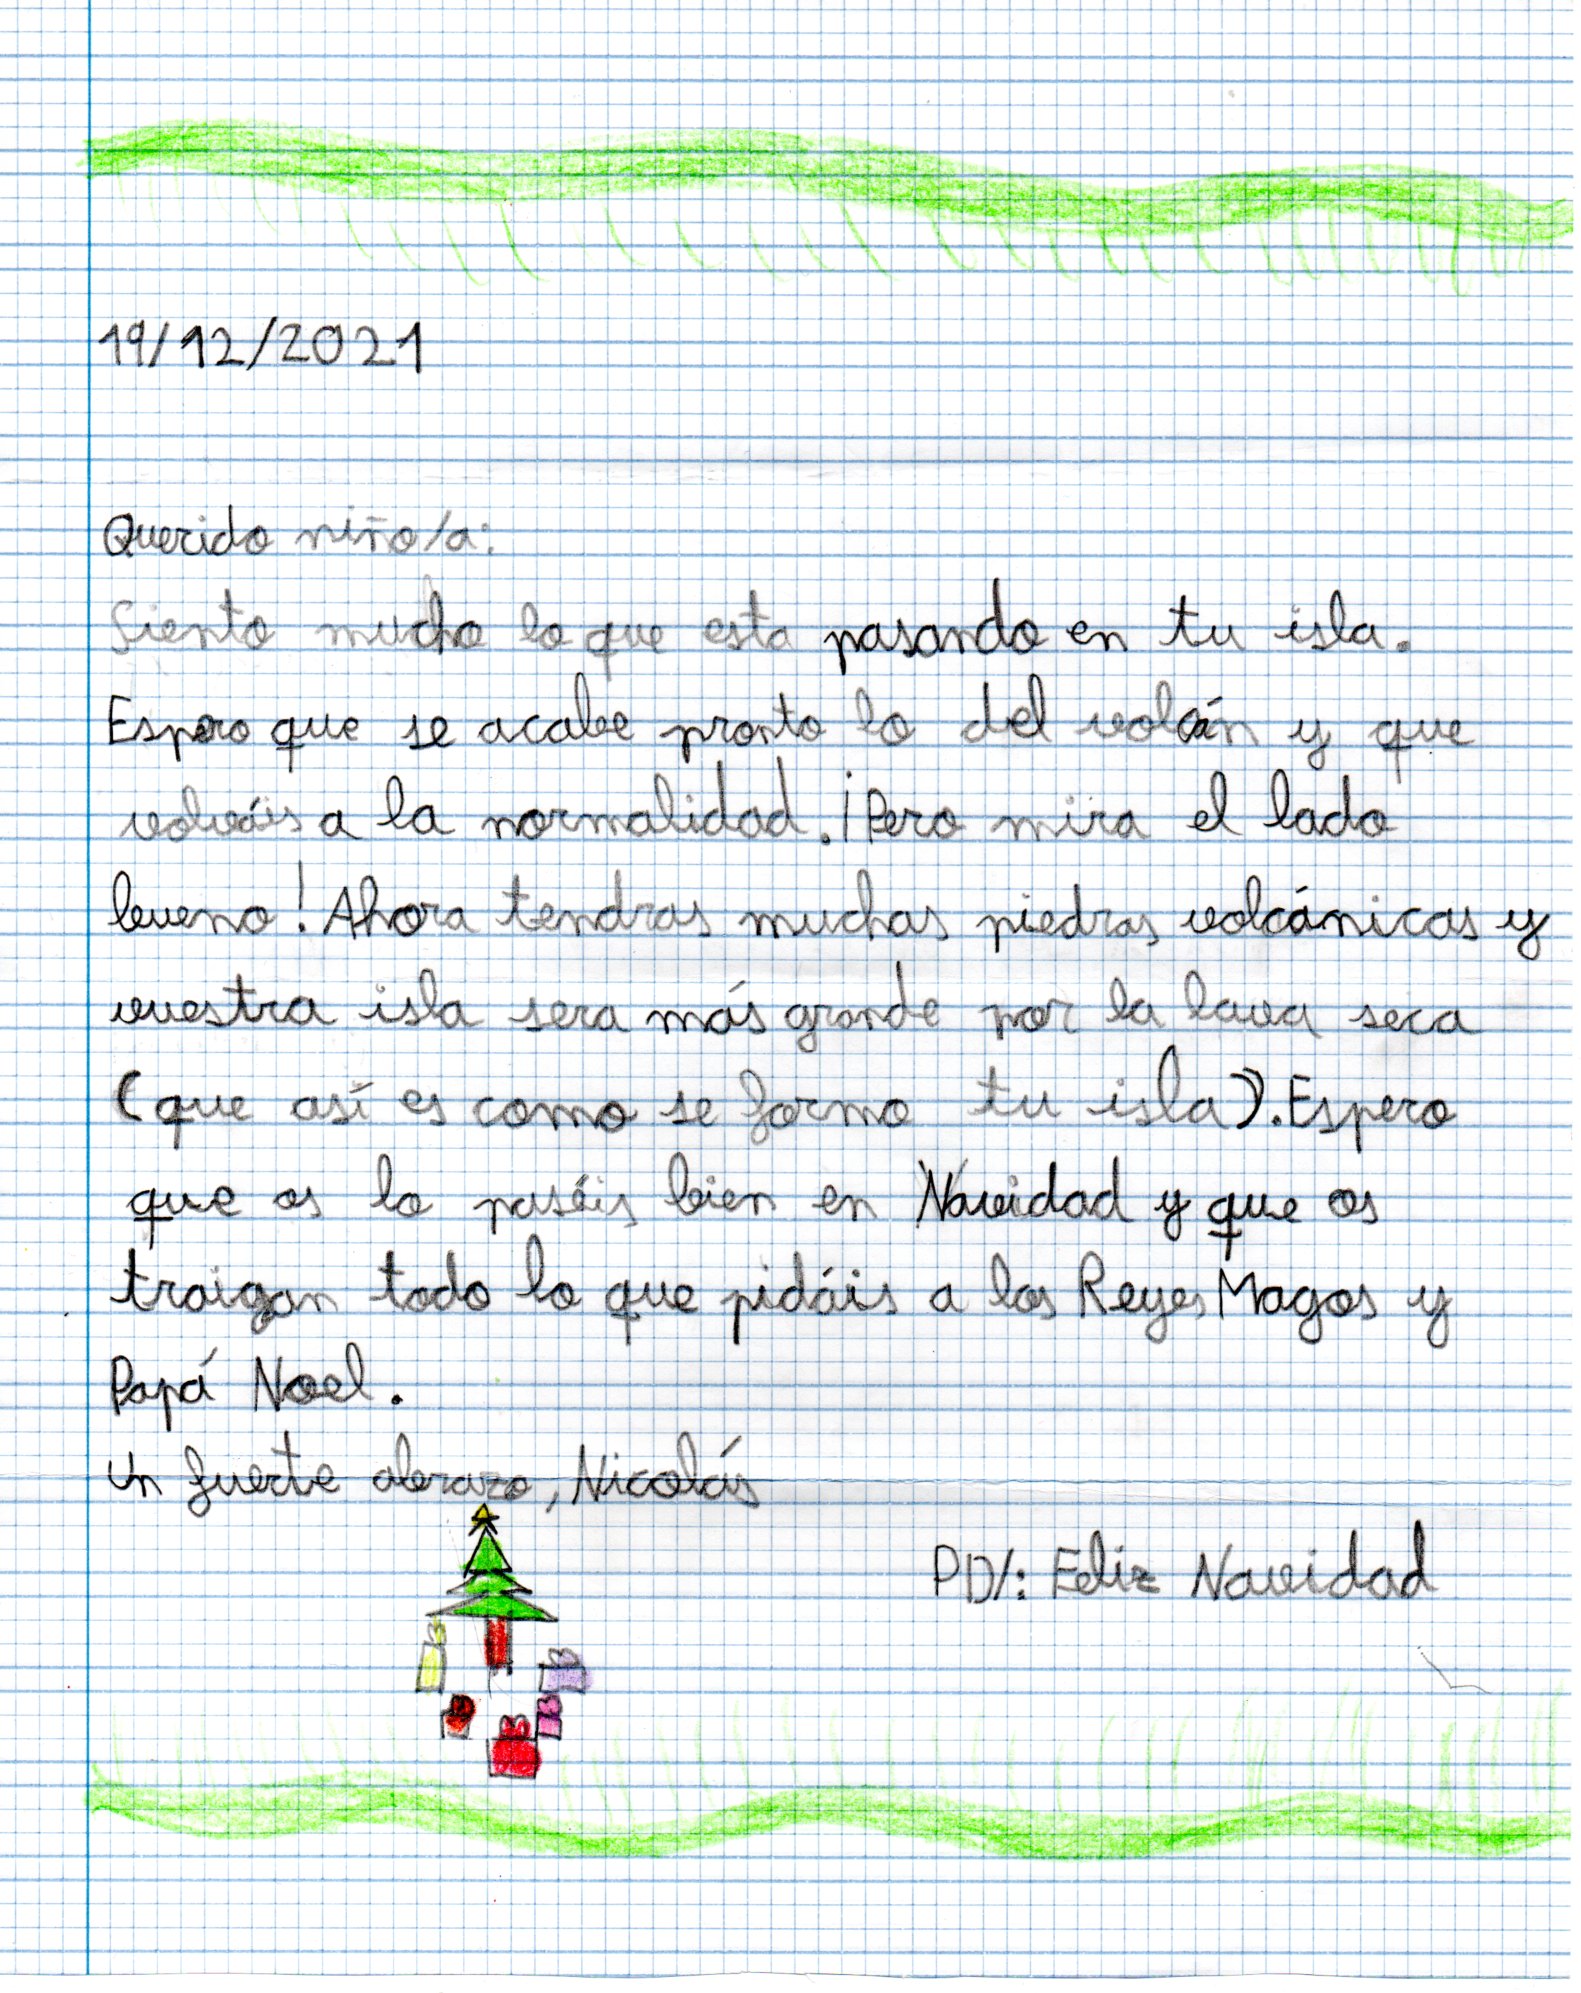 19/12/2021
Querido niño/a:
Siento mucho lo que esta pasando en tu isla.
Espero que se acabe pronto lo del volcán y que
volváis a la normalidad. ¡Pero mira el lado
bueno! Ahora tendras muchas piedras volcánicas y
vuestra isla sera más grande por la lava seca
(que así es como se formo tu isla). Espero
que os lo paséis bien en Navidad y que os
traigan todo lo que pidáis a los Reyes Magos y
Papá Noel.
Un fuerte abrazo, Nicolás
PD/: Feliz Navidad